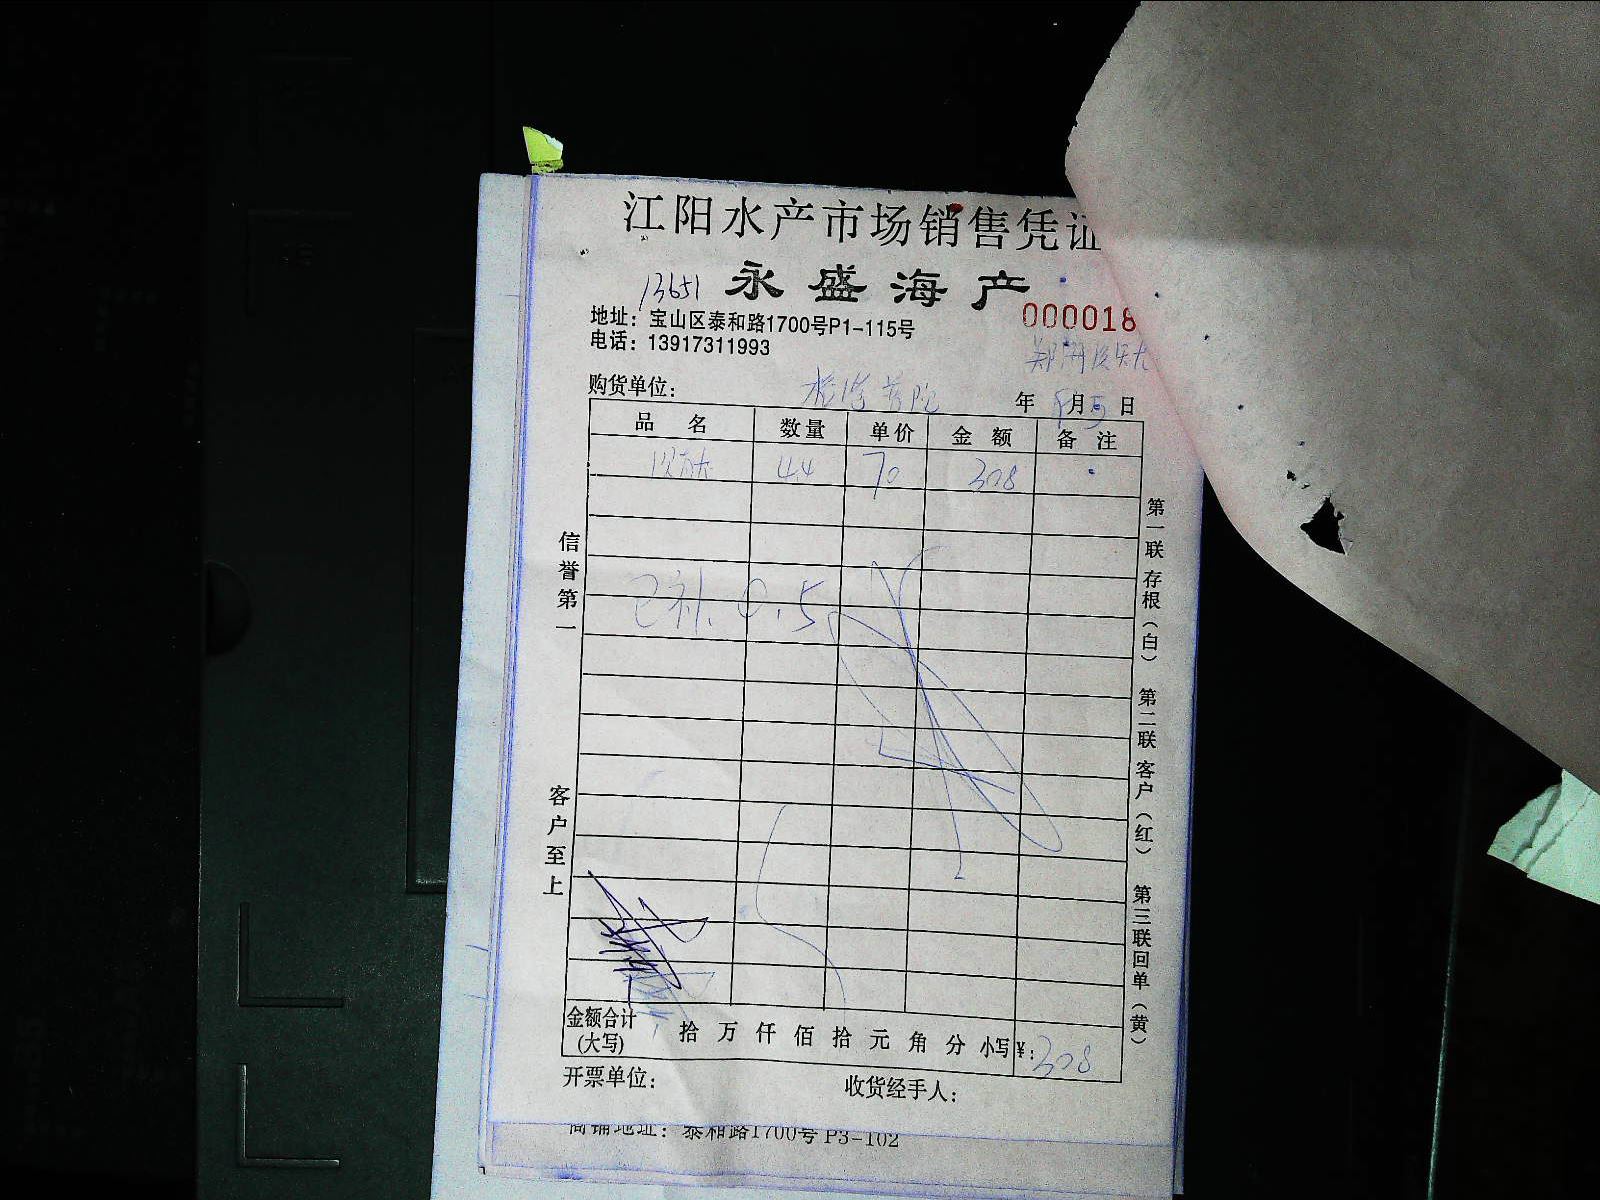 江阳水产市场销售凭证
13651 永盛海产
地址：宝山区泰和路1700号P1-115号
000018
电话：13917311993
购货单位： 年 月 5 日
品名 数量 单价 金额 备注
44 70 308
已补.0.5
信誉第一
客户至上
第一联存根（白） 第二联客户（红） 第三联回单（黄）
金额合计(大写) 拾 万 仟 佰 拾 元 角 分 小写 ¥：308
开票单位： 收货经手人：
商铺地址：泰和路1700号 P3-102